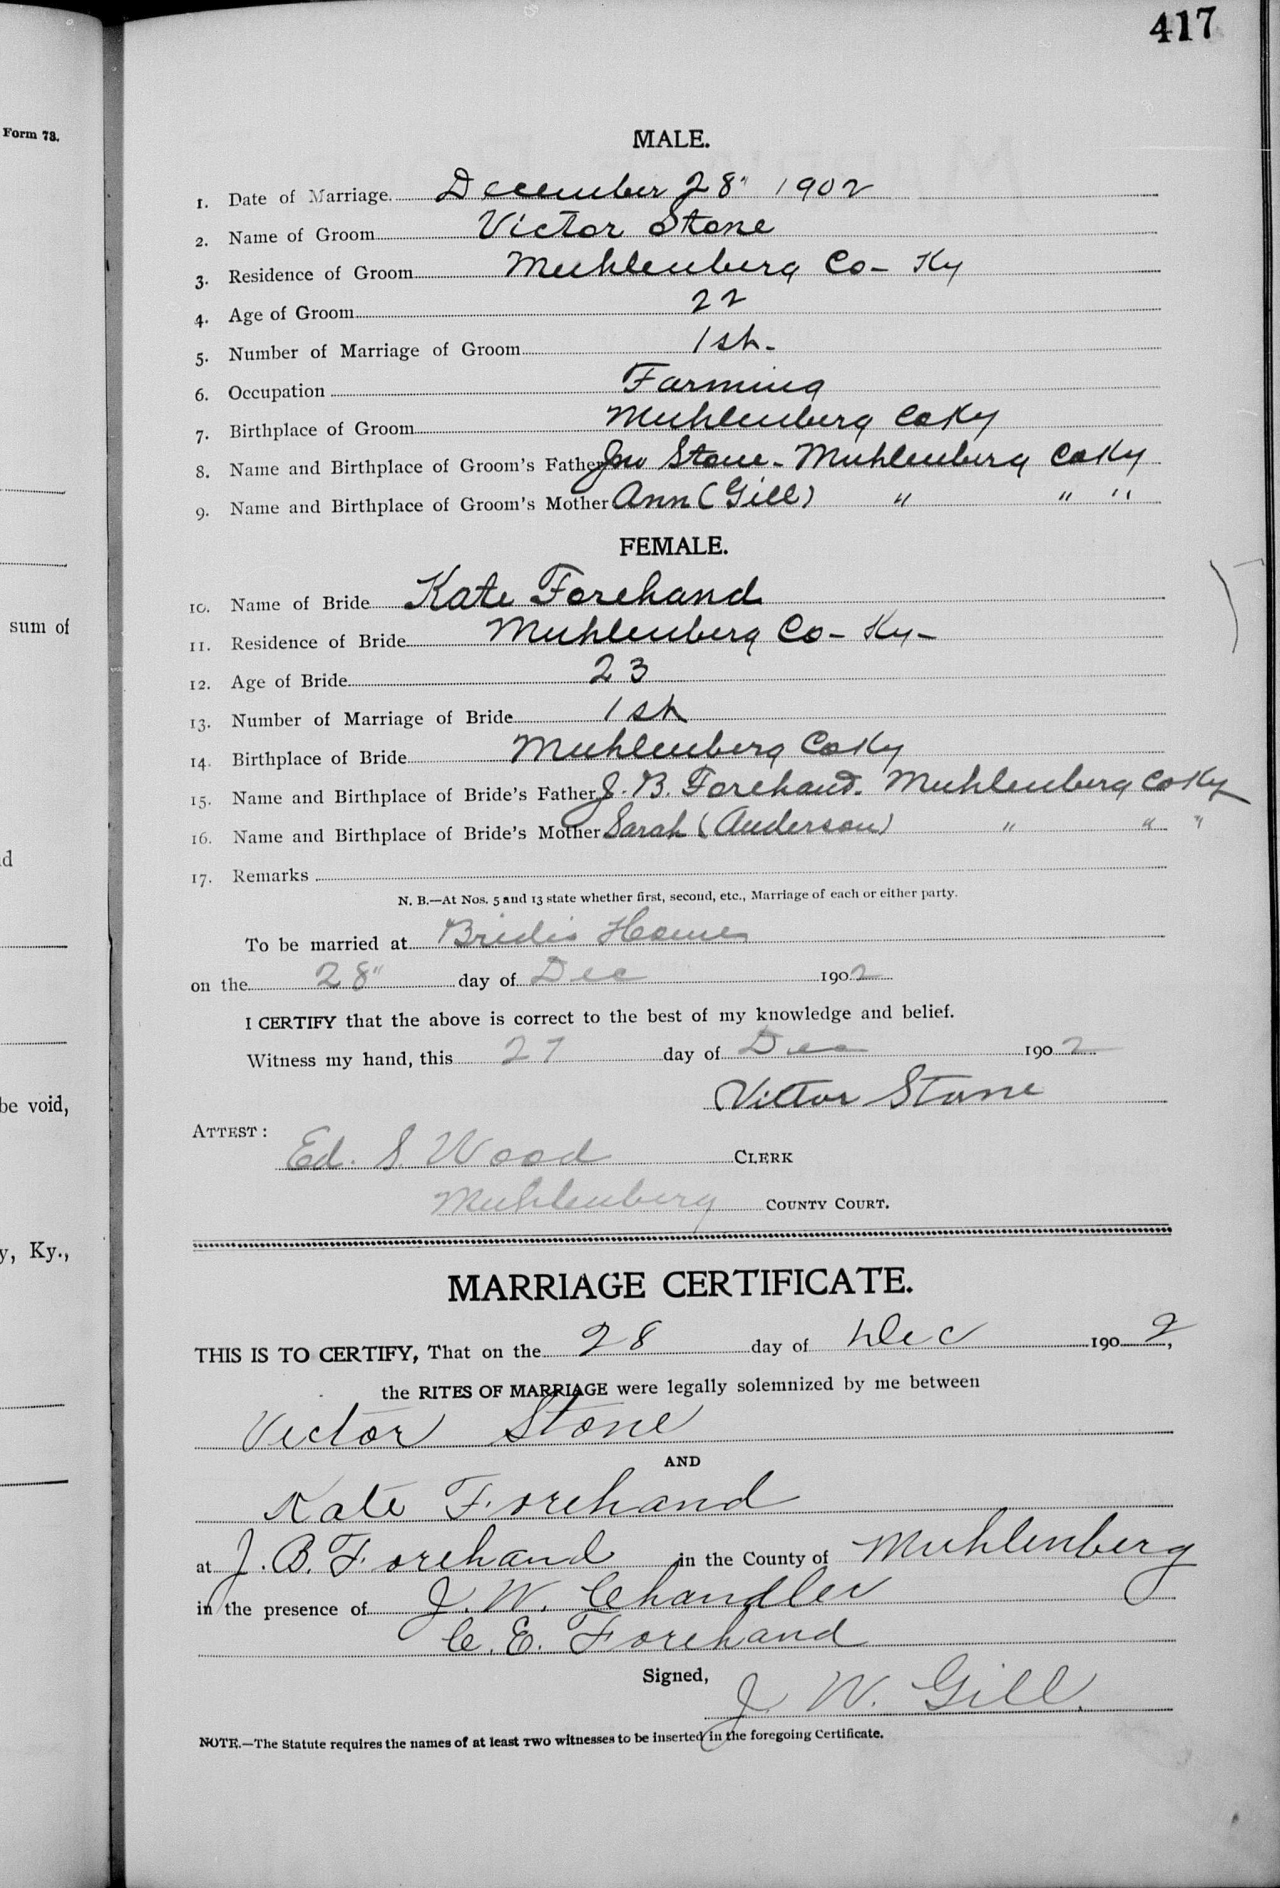 417
Form 73.
MALE.
1. Date of Marriage December 28" 1902
2. Name of Groom Victor Stone
3. Residence of Groom Muhlenberg Co- Ky
4. Age of Groom 22
5. Number of Marriage of Groom 1st.
6. Occupation Farming
7. Birthplace of Groom Muhlenberg Co Ky
8. Name and Birthplace of Groom's Father Jno Stone - Muhlenberg Co Ky
9. Name and Birthplace of Groom's Mother Ann (Gill) " " "
FEMALE.
10. Name of Bride Kate Forehand
sum of
11. Residence of Bride Muhlenberg Co- Ky-
12. Age of Bride 23
13. Number of Marriage of Bride 1st
14. Birthplace of Bride Muhlenberg Co Ky
15. Name and Birthplace of Bride's Father J. B. Forehand. Muhlenberg Co Ky
16. Name and Birthplace of Bride's Mother Sarah (Anderson) " " "
17. Remarks
N. B.—At Nos. 5 and 13 state whether first, second, etc., Marriage of each or either party.
To be married at Brides Home
on the 28" day of Dec 1902
I CERTIFY that the above is correct to the best of my knowledge and belief.
Witness my hand, this 27 day of Dec 1902
be void,
Victor Stone
ATTEST:
Ed. S. Wood CLERK
Muhlenberg COUNTY COURT.
y, Ky.,
MARRIAGE CERTIFICATE.
THIS IS TO CERTIFY, That on the 28 day of Dec 1902,
the RITES OF MARRIAGE were legally solemnized by me between
Victor Stone
AND
Kate Forehand
at J. B. Forehand in the County of Muhlenberg
in the presence of J. W. Chandler
C. E. Forehand
Signed,
J. W. Gill.
NOTE.—The Statute requires the names of at least TWO witnesses to be inserted in the foregoing Certificate.